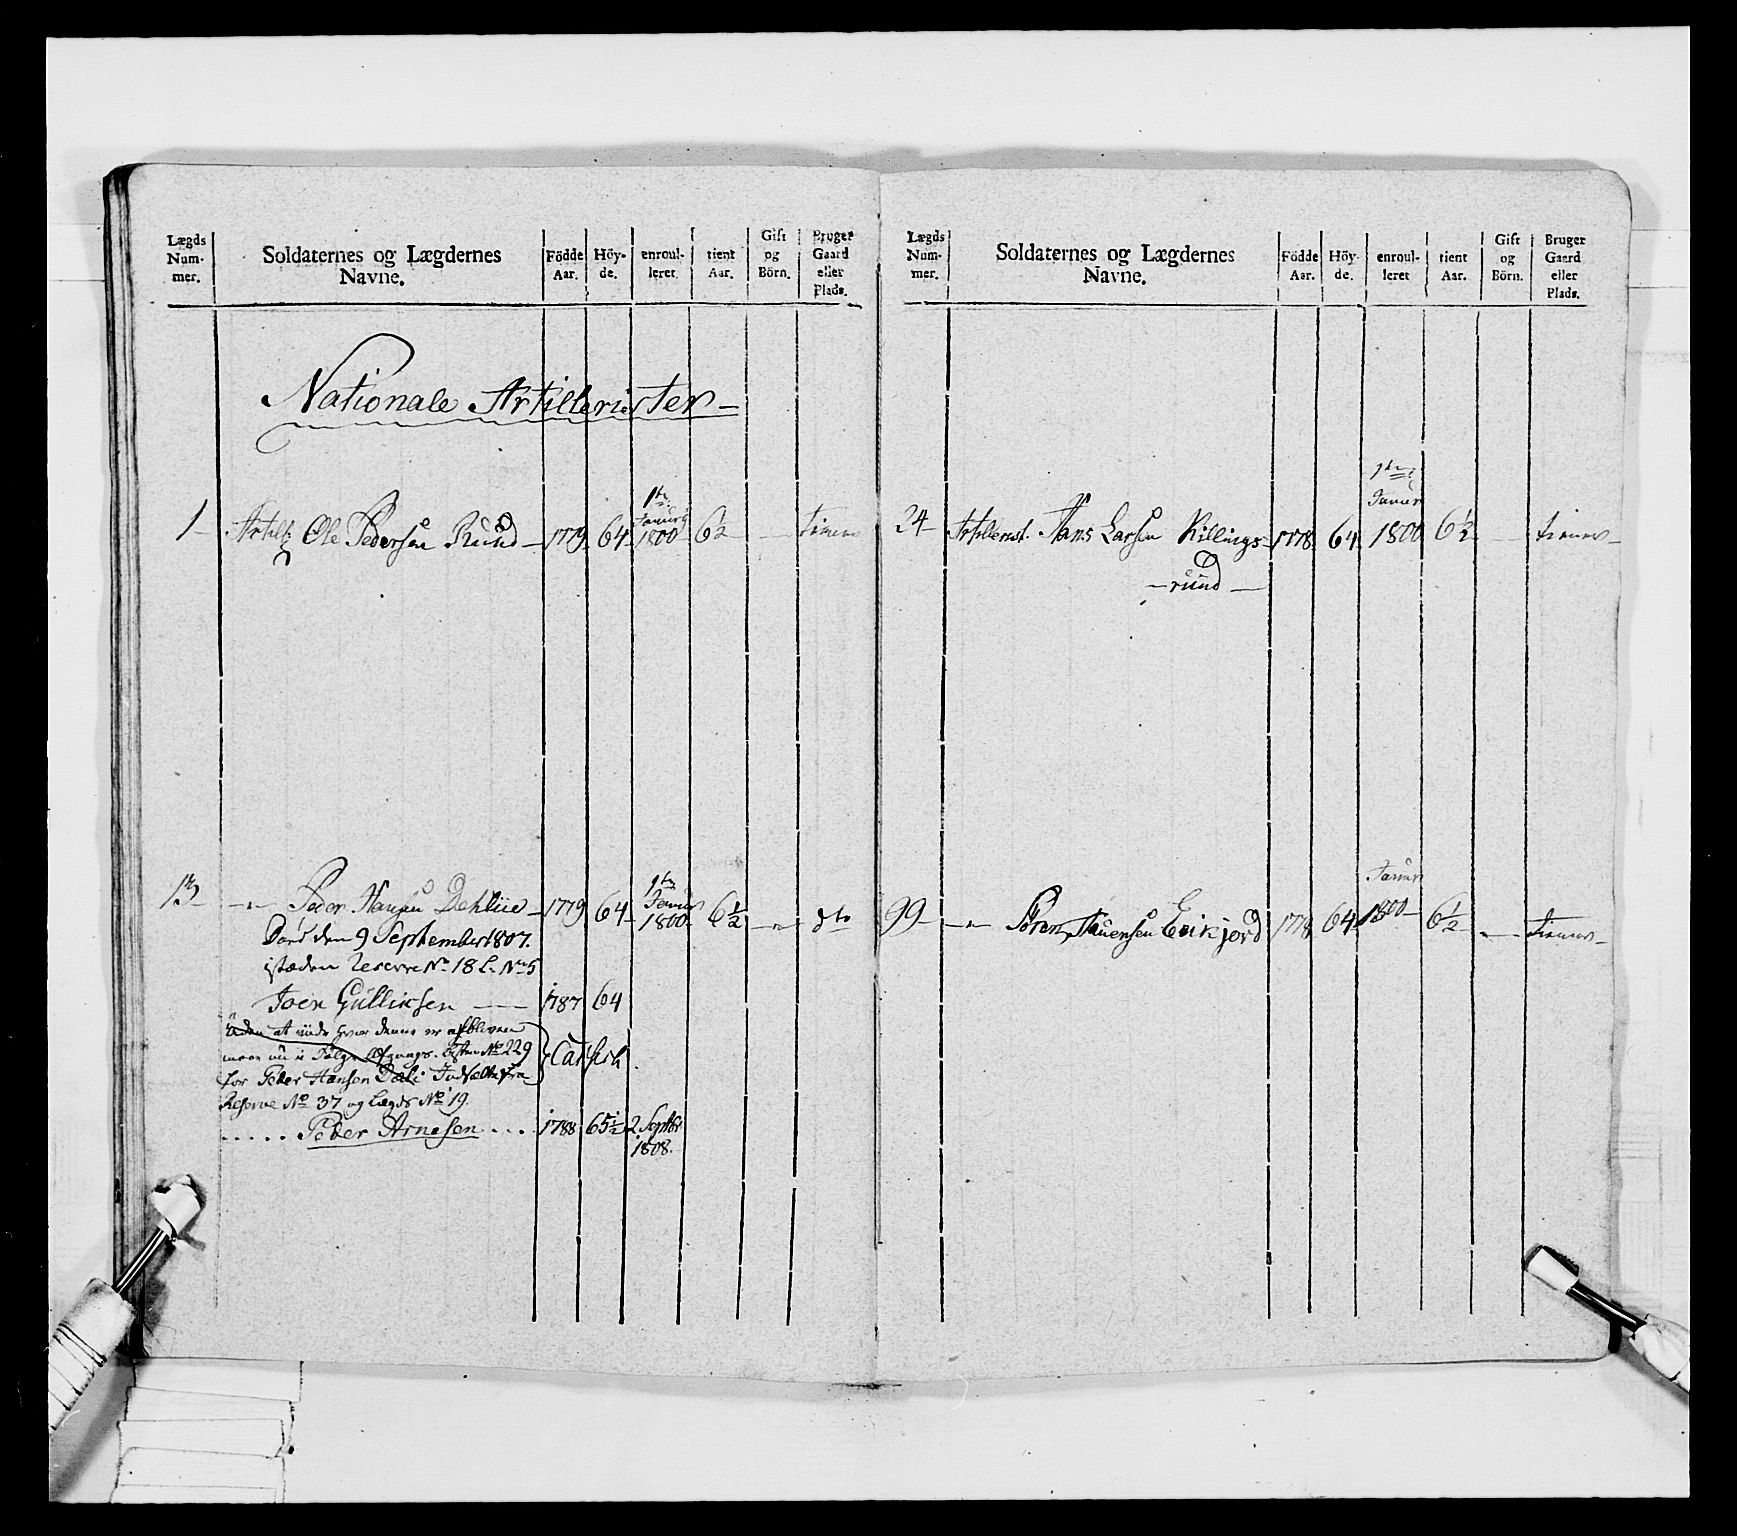 Lægds Num- mer. Soldaternes og Lægdernes Navne. Födde Aar. Höy- de. enroul- leret. tient Aar. Gift og Börn. Bruger Gaard eller Plads.
Nationale Artillerister
1 Artill: Ole Pedersen Ruud 1779 64 1te Janur 1800 6½ tiener
13 Peder Hansen Dehlie 1779 64 1te Janur 1800 6½ dto
Död den 9 September 1807.
istæden Reserve No 18 L. No 5
Joen Gulliksen 1787 64
Uden at vide hvor denne er afbleven
maae nu i Fölge Afgangs-Listen No 229
for Peder Hansen Dæli Indsættes fra
Reserve No 37 og Lægds No 19.
Cassert
Peder Arnesen 1788 65½ 2 Septbr 1808.
Lægds Num- mer. Soldaternes og Lægdernes Navne. Födde Aar. Höy- de. enroul- leret tient Aar. Gift og Börn. Bruger Gaard eller Plads.
24 Artillerist. Hans Larsen Killings- 1778 64 1te Janur 1800 6½ tiener
rund
99 Sören Eeikjord 1778 64 Janur 1800 6½ tiener